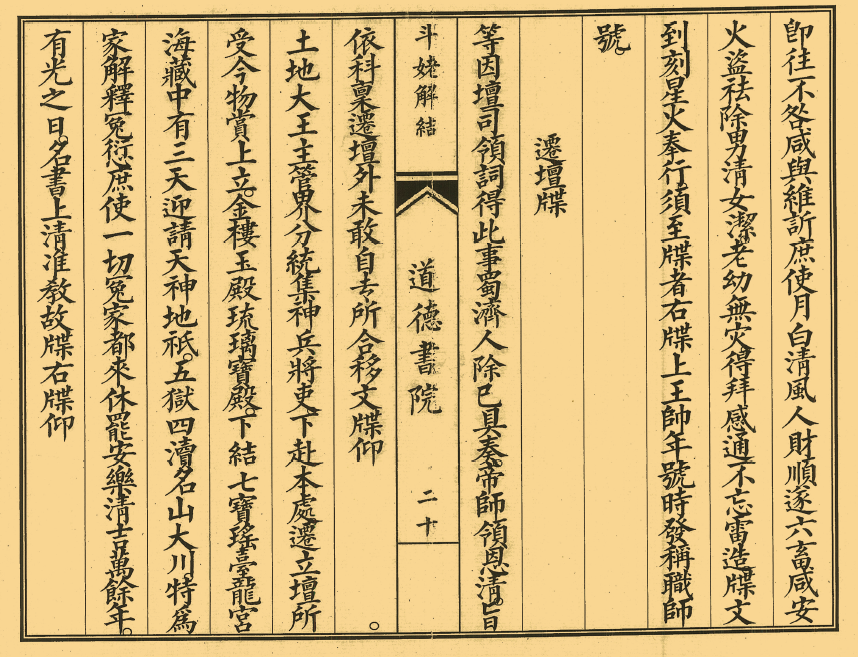 即往不咎咸與維新庶使月白清風人財順遂六畜咸安
火盜祛除男清女潔老幼無灾得拜感通不忘雷造牒文
到刻星火奉行須至牒者右牒上王帥年號時發稱職師
號。
遷壇牒
等因壇司領詞得此事蜀濟人除已具奏帝師領恩清。旨
斗姥解結
道德書院
二十
依科稟遷壇外未敢自去所合移文牒仰。
土地大王主管界分統集神兵將吏下赴本處遷立壇所
受今物賞上立。金樓玉殿琉璃寶殿。下結七寶瑤臺龍宮
海藏中有三天迎請天神地祇。五獄四瀆名山大川。特為
家解釋冤愆庶使一切冤家都來休罷安樂清吉萬餘年。
有光之日。名書上清准教故牒右牒仰